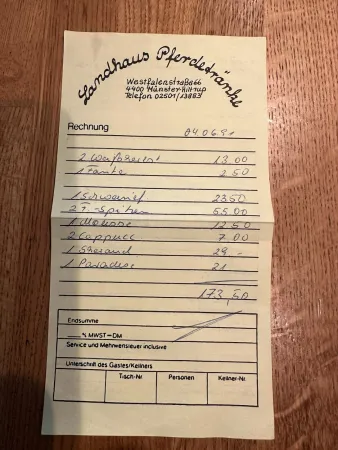 Landhaus Pferdetränke
Westfalenstraße 66
4400 Münster-Hiltrup
Telefon 02501/13883
Rechnung
04.06.91
13.00
1 Fanta 2.50
23.50
55.00
12.50
2 Cappucc 7.00
1 29.-
1 21.-
173,50
Endsumme
% MWST=DM
Service und Mehrwertsteuer inclusive
Unterschrift des Gastes/Kellners
Tisch-Nr. Personen Kellner-Nr.